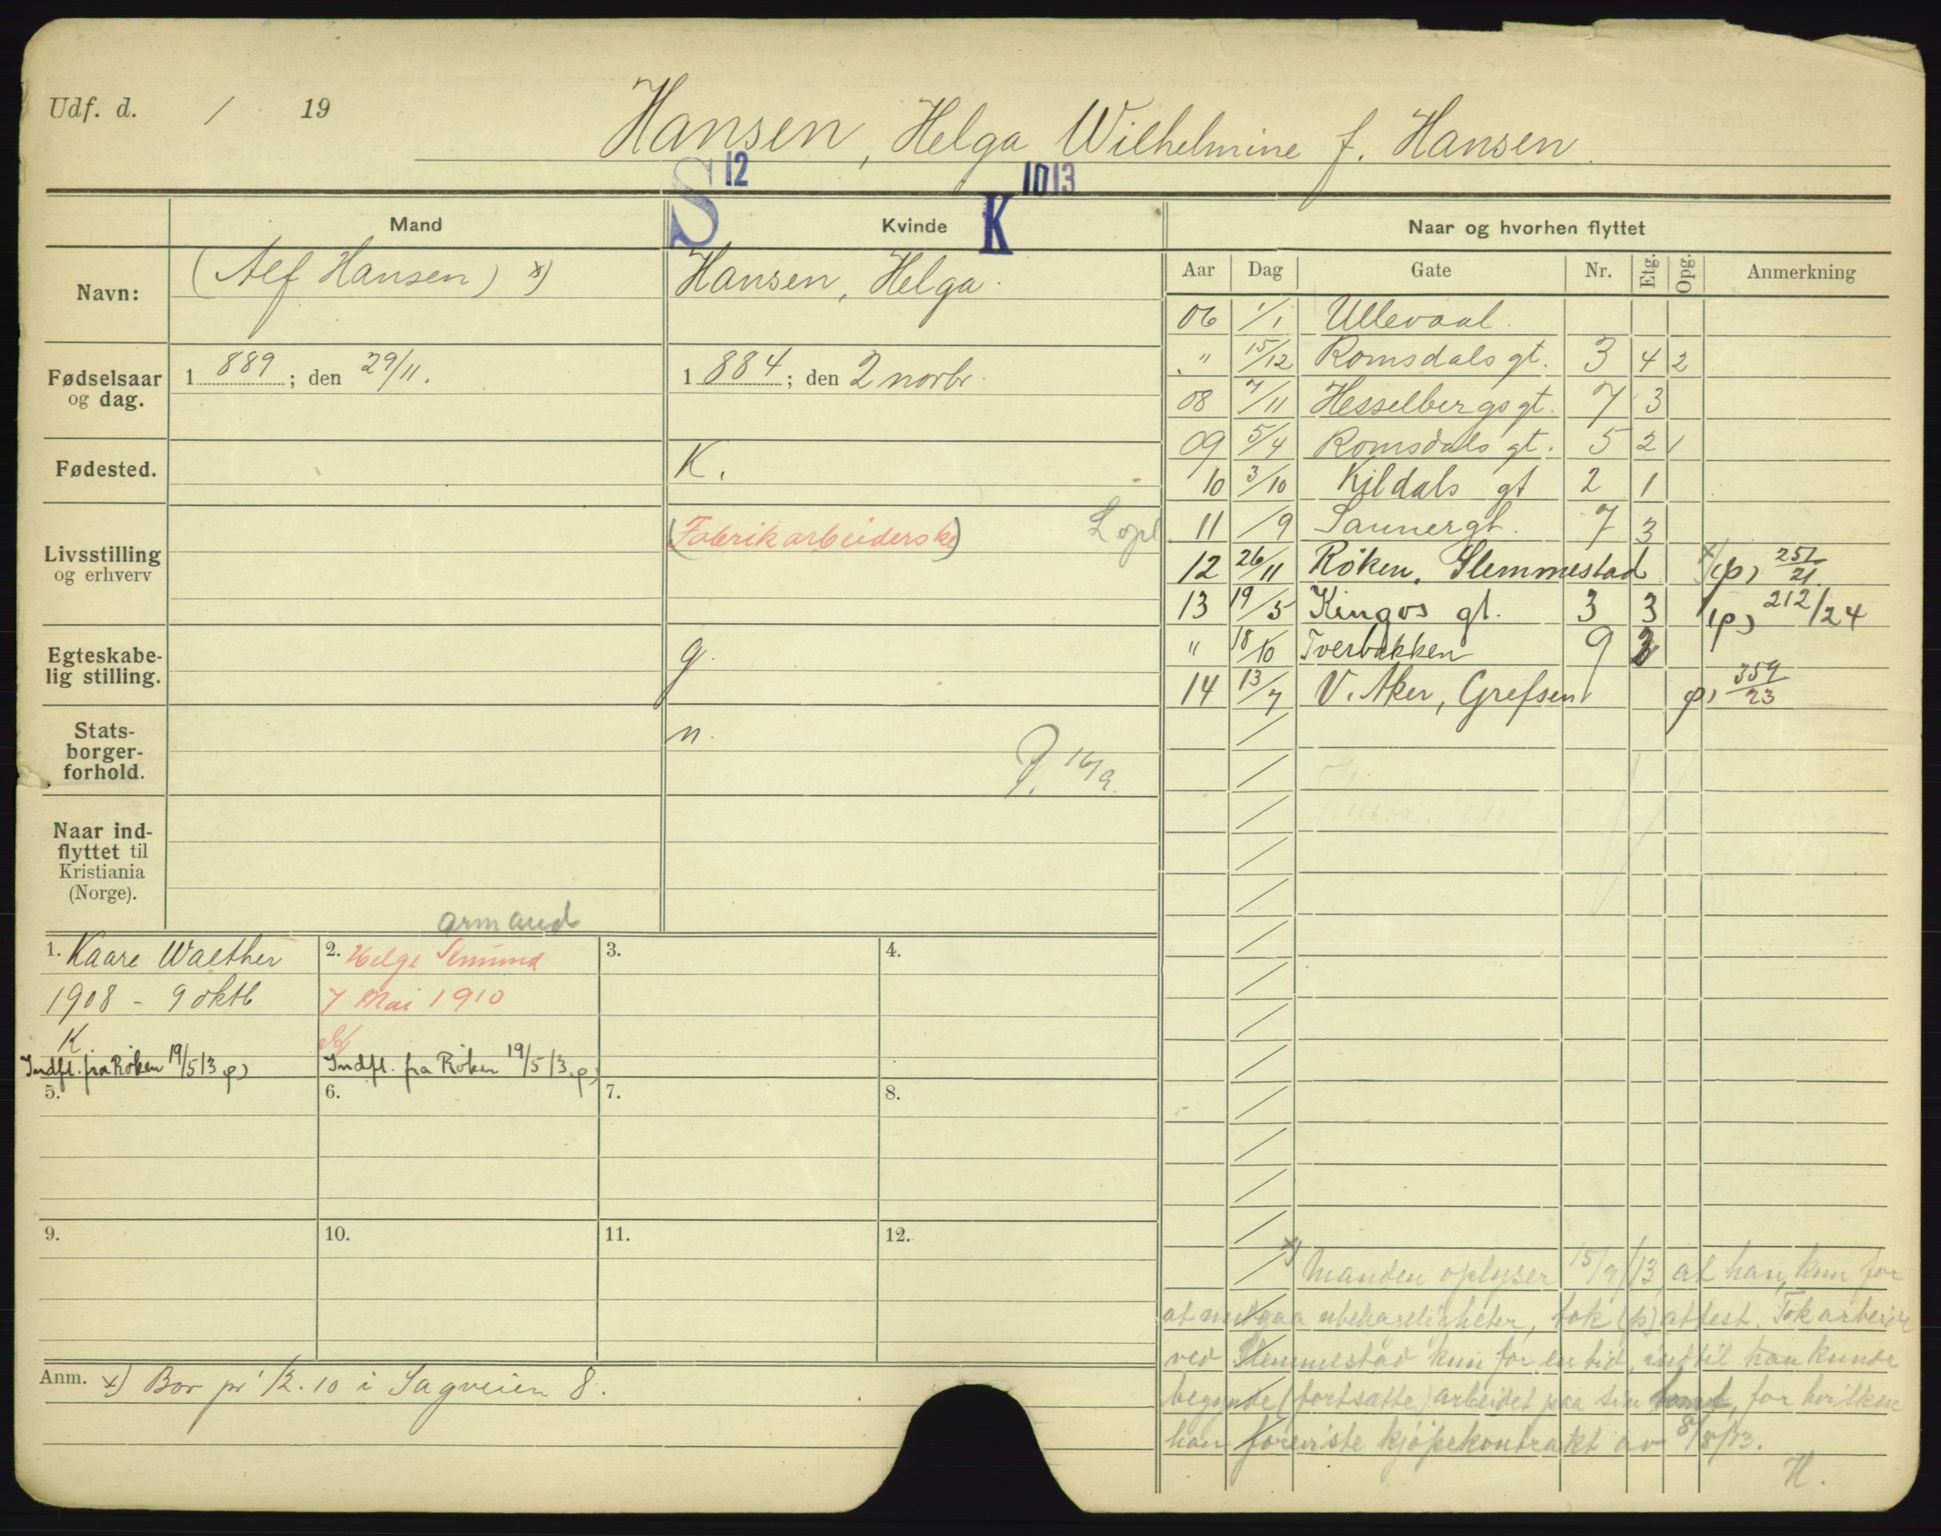 Udf. d. / 19
Hansen, Helga Wilhelmine f. Hansen.
S 12
K 1013
Mand
Kvinde
Naar og hvorhen flyttet
Navn:
(Alf Hansen) x)
Hansen, Helga.
Aar Dag Gate Nr. Etg. Opg. Anmerkning
Fødselsaar og dag.
1 889 ; den 29/11.
1 884 ; den 2 novbr.
Fødested.
K.
Livsstilling og erhverv
(Fabrikarbeiderske)
L opl
Egteskabe-
lig stilling.
g.
Stats-
borger-
forhold.
n.
16/9.
Naar ind-
flyttet til
Kristiania
(Norge).
06 1/1 Ullevaal.
" 15/12 Romsdals gt. 3 4 2
08 7/11 Hesselbergs gt. 7 3
09 5/4 Romsdals gt. 5 2 1
10 3/10 Kildals gt 2 1
11 /9 Sannergt. 7 3
12 26/11 Røken, Slemmestad x) (p) 251/21
13 19/5 Kingos gt. 3 3 (p) 212/24
" 18/10 Tverbakken 9 2
14 13/7 V. Aker, Grefsen p) 359/23
armand
1. Kaare Walther
1908 - 9 oktb
K.
Indfl. fra Røken 19/5 13 p)
2. Helge
7 Mai 1910
Indfl. fra Røken 19/5 13 p)
3.
4.
5.
6.
7.
8.
9.
10.
11.
12.
Anm. x) Bor pr 1/2.10 i Sagveien 8.
x) Manden oplyser 15/9/13, at han, kun for
at undgaa ubehageligheter, tok (p) attest. Tok arbeide
ved Slemmestad kun for en tid, indtil han kunde
begynde (fortsætte) arbeidet paa sin tomt, for hvilken
han foreviste kjøpekontrakt av 8/8/13.
H.